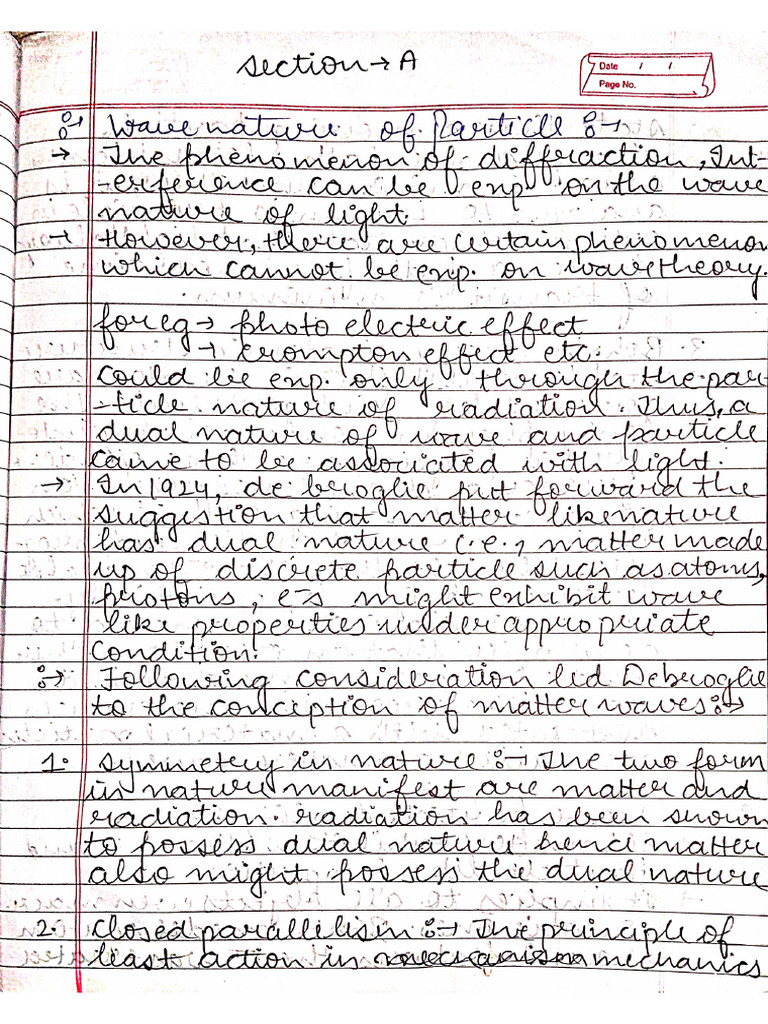 Section → A
Date / /
Page No.
Wave nature of Particle :→
→ The phenomenon of diffraction, Int-
-erference can be exp on the wave
nature of light.
→ However, there are certain phenomenon
which cannot be exp. on wave theory.
for eg → photo electric effect
→ crompton effect etc.
could be exp. only through the par-
-ticle nature of radiation. Thus, a
dual nature of wave and particle
came to be associated with light.
→ In 1924, de broglie put forward the
suggestion that matter like nature
has dual nature i.e., matter made
up of discrete particle such as atoms,
protons, e-s might exhibit wave
like properties under appropriate
condition.
:→ Following consideration led Debroglie
to the conception of matter waves :→
1. Symmetery in nature :→ The two form
in nature manifest are matter and
radiation. radiation has been shown
to possess dual nature hence matter
also might possess the dual nature
2. Closed parallelism :→ The principle of
least action in mechanics